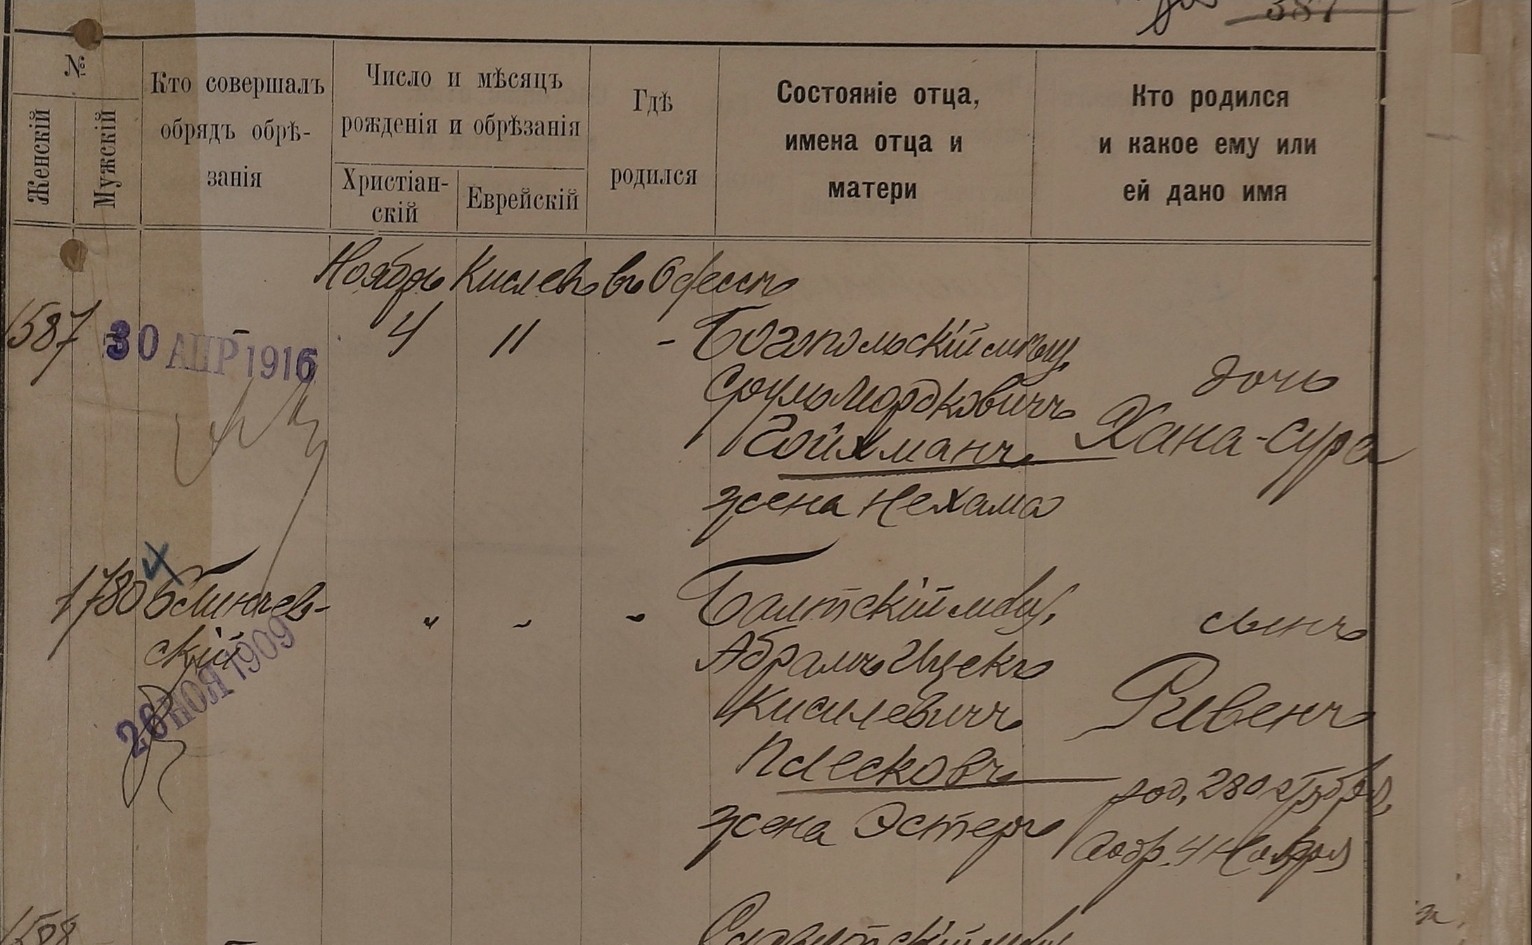 387
№
Женскій
Мужскій
Кто совершалъ
обрядъ обрѣ-
занія
Число и мѣсяцъ
рожденія и обрѣзанія
Христіан-
скій
Еврейскій
Гдѣ
родился
Состояніе отца,
имена отца и
матери
Кто родился
и какое ему или
ей дано имя
Ноябрь Кислевъ въ Одессѣ
1587 - 4 11 - Богопольскій мѣщ.
30 АПР 1916
Сруль Мордковичъ дочь
Гойхманъ Хана-Сура
жена Нехама
4
1780 " - - Балтскій мѣщ. сынъ
скій Абрамъ Ицекъ
26 НОЯ 1909
Кисилевичъ Рувенъ
Плесковъ
род. 28 Октября,
жена Эстеръ
обр. 4 Ноября
1588 -